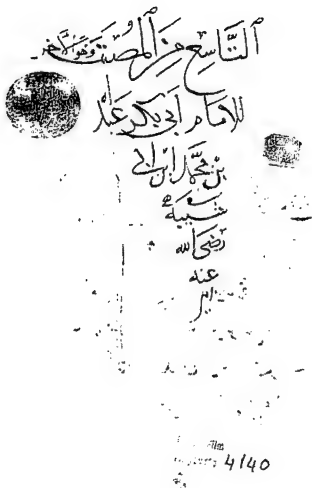 التاسع من المصنف وهو الاخر
للامام ابي بكر عبد
بن محمد ابن ابي
شيبة
رضي الله
عنه
4/40